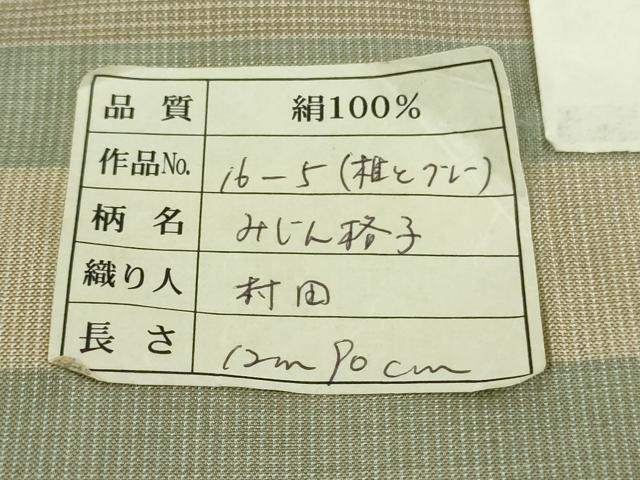 品質 絹100%
作品No. 16-5(椎とグレー)
柄名 みじん格子
織り人 村田
長さ 12m90cm